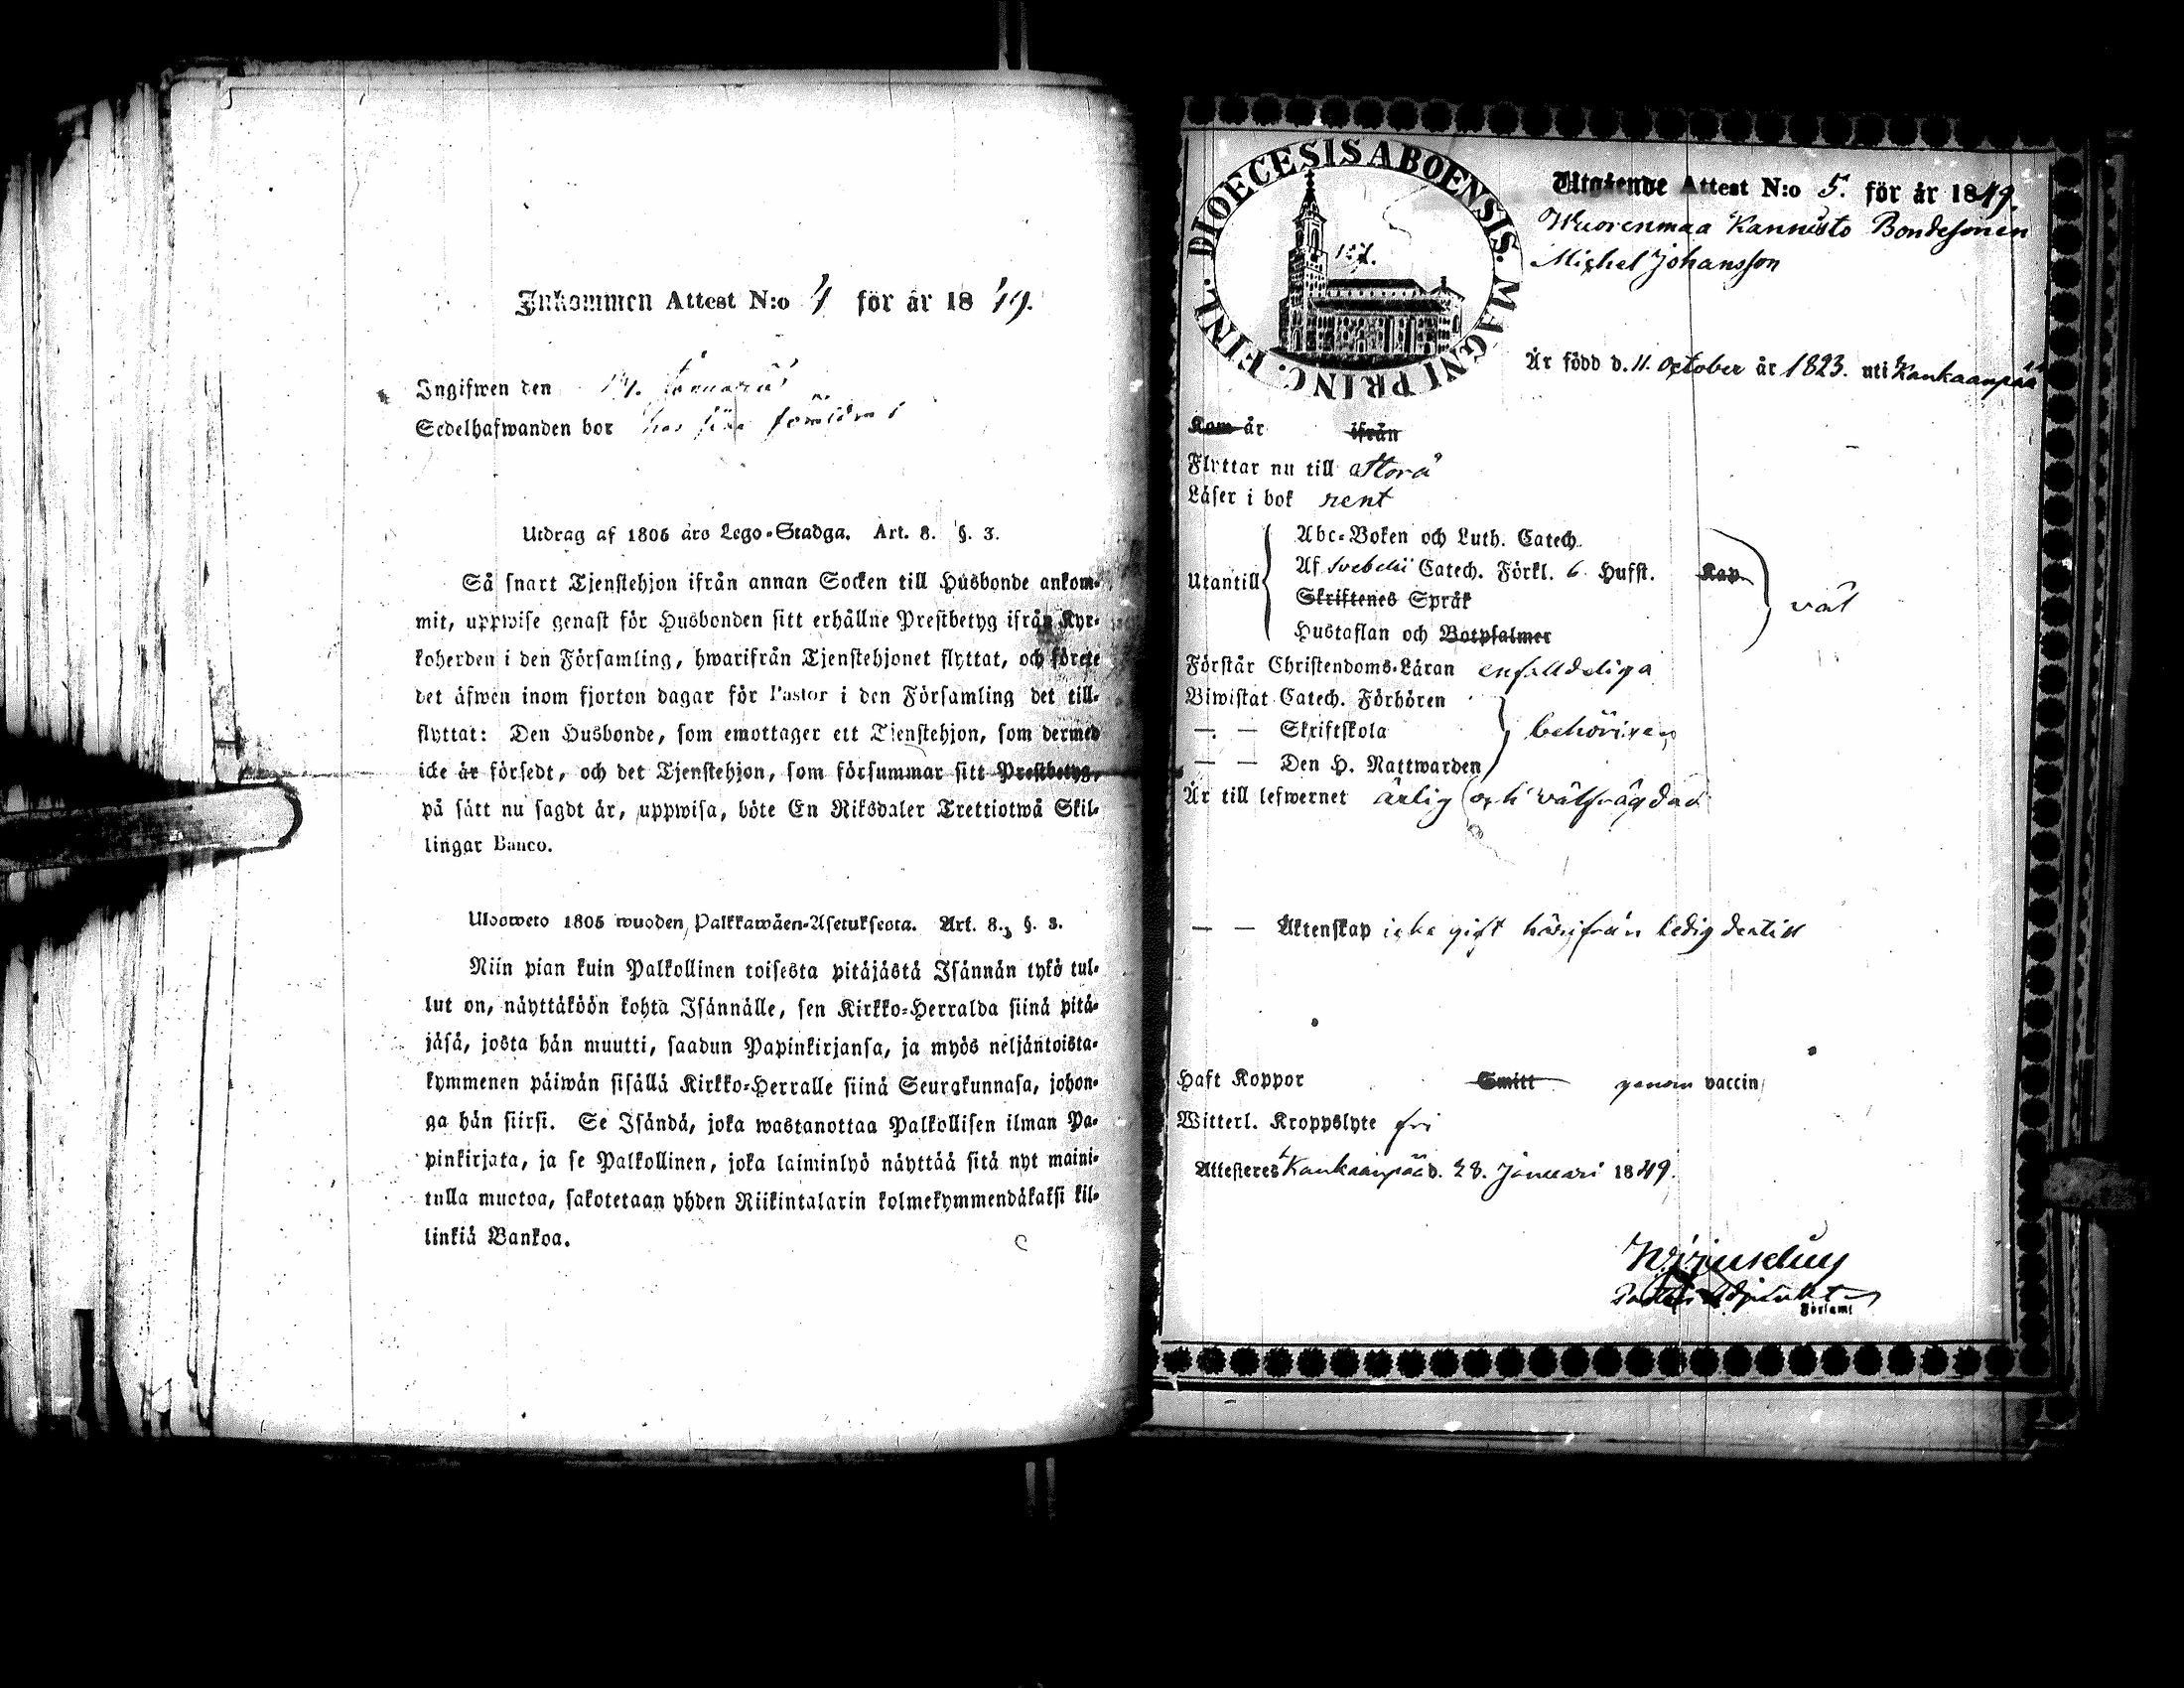 Inkommen Attest N:o 4 för år 1849.
Ingifwen den 14. Januarii
Sedelhafwanden bor hos sina föräldrar
Utdrag af 1805 års Lego-Stadga. Art. 8. §. 3.
Så snart Tjenstehjon ifrån annan Socken till Husbonde ankom-
mit, uppwise genast för Husbonden sitt erhållne Prestbetyg ifrån Kyr-
koherden i den Församling, hwarifrån Tjenstehjonet flyttat, och förete
det äfwen inom fjorton dagar för Pastor i den Församling det till-
flyttat: Den Husbonde, som emottager ett Tjenstehjon, som dermed
icke är försedt, och det Tjenstehjon, som försummar sitt Prestbetyg,
på sätt nu sagdt är, uppwisa, böte En Riksdaler Trettiotwå Skil-
lingar Banco.
Ulosweto 1805 wuoden Palkkawäen-Asetuksesta. Art. 8., §. 3.
Niin pian kuin Palkollinen toisesta pitäjästä Isännän tykö tul-
lut on, näyttäköön kohta Isännälle, sen Kirkko-Herralda siinä pitä-
jäsä, josta hän muutti, saadun Papinkirjansa, ja myös neljäntoista-
kymmenen päiwän sisällä Kirkko-Herralle siinä Seurakunnasa, johon-
ga hän siirsi. Se Isändä, joka wastanottaa Palkollisen ilman Pa-
pinkirjata, ja se Palkollinen, joka laiminlyö näyttää sitä nyt maini-
tulla muotoa, sakotetaan yhden Riikintalarin kolmekymmendäkaksi kil-
linkiä Bankoa.
DIOECESIS ABOENSIS. MAGNI PRINC. FINL.
Utgående Attest N:o 5. för år 1849.
Wuorenmaa Kannisto Bondesonen
Michel Johansson
Är född d. 11. October år 1823. uti Kankaanpää
Kom år ifrån
Flyttar nu till
Läser i bok rent
Abc-Boken och Luth. Catech.
Utantill Af Svebelii Catech. Förkl. 6 Hufst. Kap
Skriftenes Språk
väl
Hustaflan och Botpsalmer
Förstår Christendoms-Läran enfaldeliga
Biwistat Catech. Förhören
— — Skriftskola behörigen
— — Den H. Nattwarden
Är till lefwernet ärlig och wälfrägdad
— — Äktenskap icke gift härifrån ledig dertill
Haft Koppor Smitt genom vaccin
Witterl. Kroppslyte fri
Attesteres Kankaanpää d. 28. Januari 1849.
Adjunkt
Församl